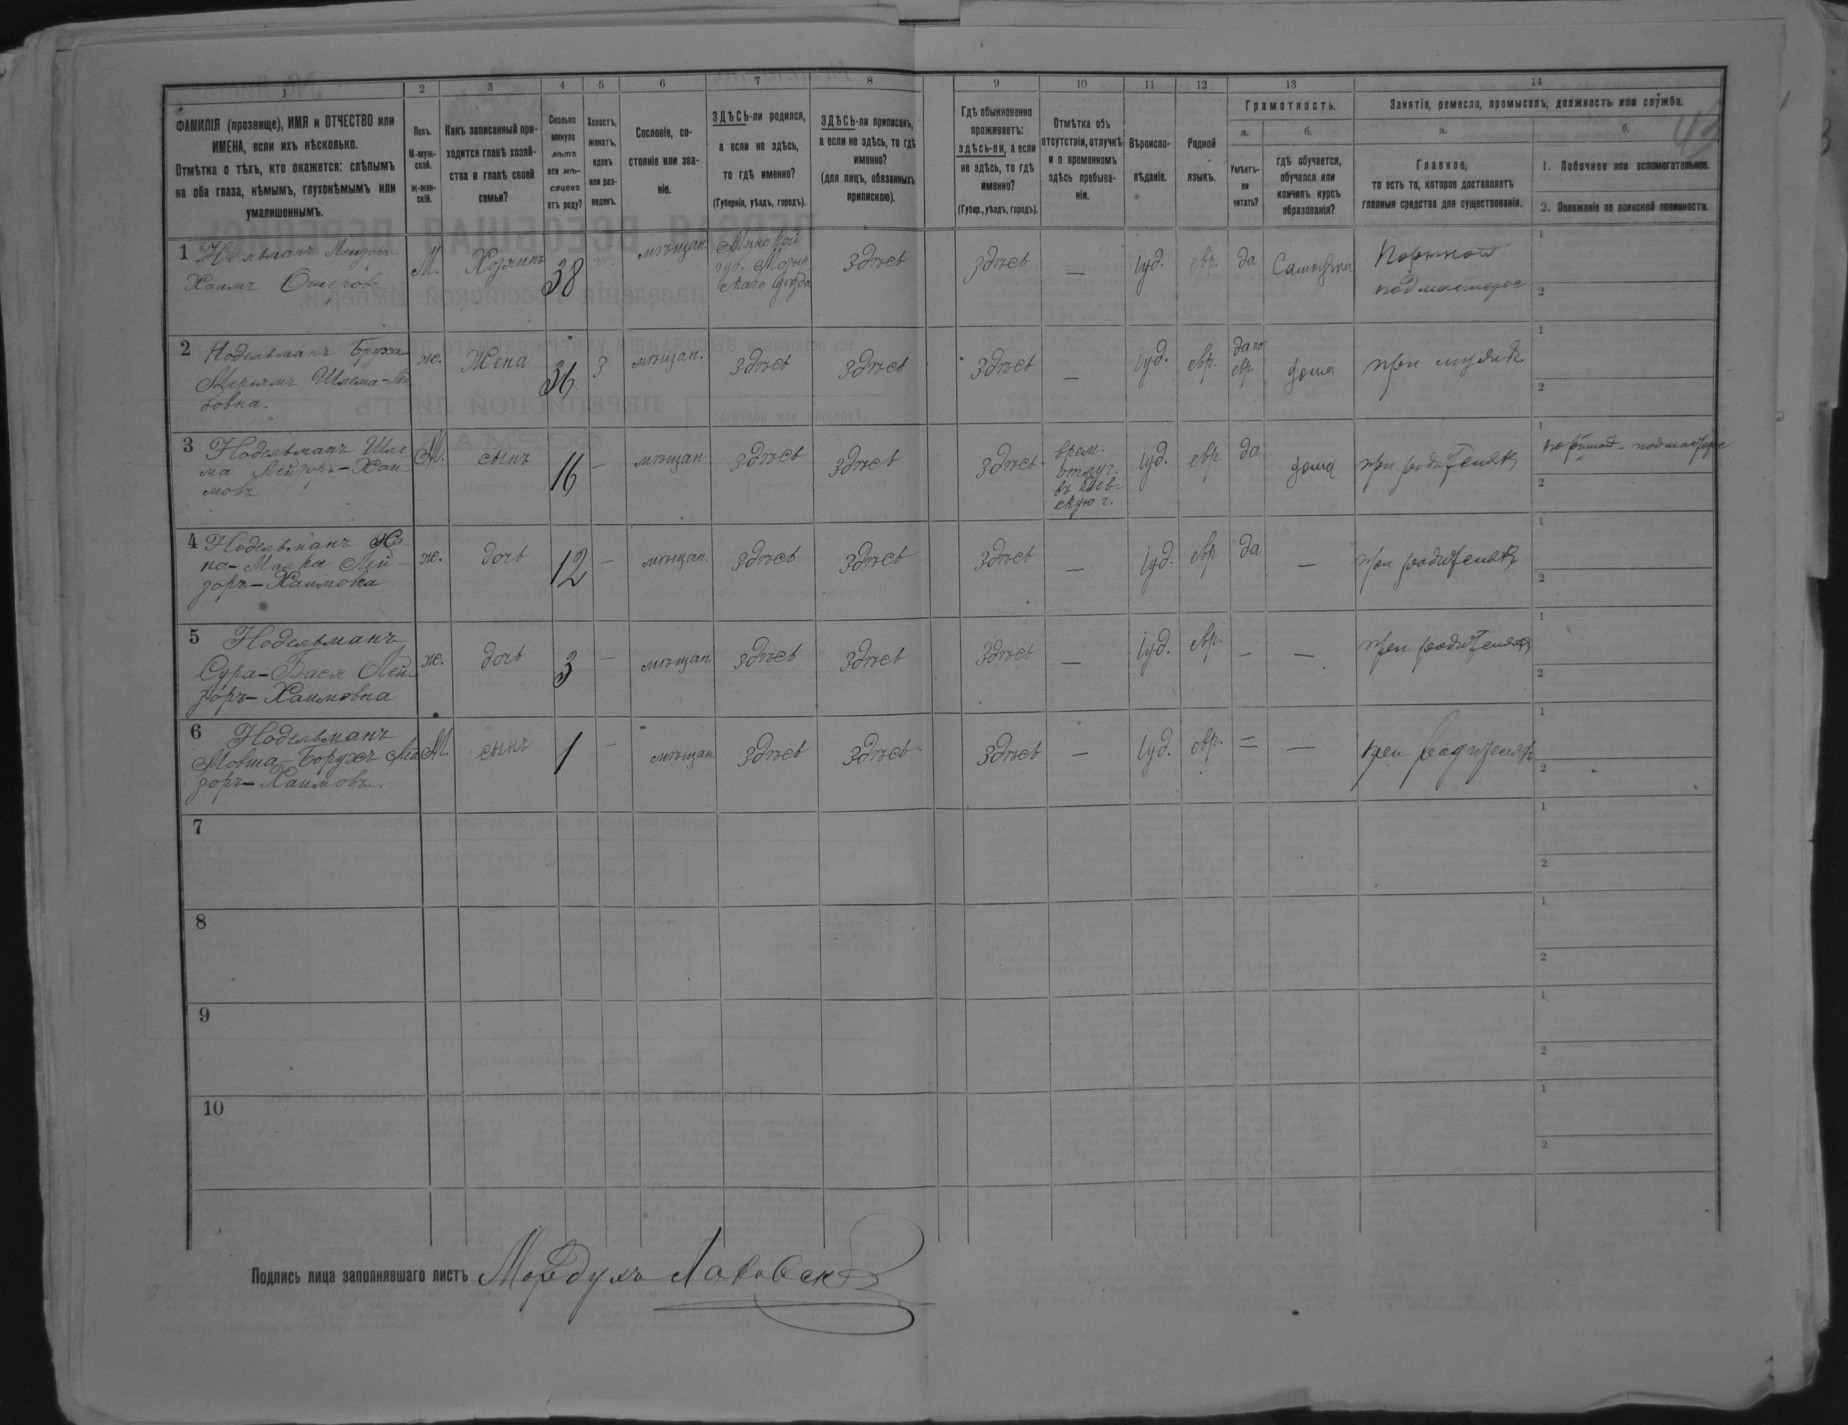 1 2 3 4 5 6 7 8 9 10 11 12 13 14
ФАМИЛІЯ (прозвище), ИМЯ и ОТЧЕСТВО или
ИМЕНА, если ихъ нѣсколько.
Отмѣтка о тѣхъ, кто окажется: слѣпымъ
на оба глаза, нѣмымъ, глухонѣмымъ или
умалишеннымъ.
Полъ.
М-муж-
ской.
ж-жен-
скій.
Какъ записанный при-
ходится главѣ хозяй-
ства и главѣ своей
семьи?
Сколько
минуло
лѣтъ
или мѣ-
сяцевъ
отъ роду?
Холостъ,
женатъ,
вдовъ
или раз-
веденъ.
Сословіе, со-
стояніе или зва-
ніе.
ЗДѢСЬ-ли родился,
а если не здѣсь,
то гдѣ именно?
(Губернія, уѣздъ, городъ).
ЗДѢСЬ-ли приписанъ,
а если не здѣсь, то гдѣ
именно?
(для лицъ, обязанныхъ
припискою).
Гдѣ обыкновенно
проживаетъ:
здѣсь-ли, а если
не здѣсь, то гдѣ
именно?
(Губер., уѣздъ, городъ).
Отмѣтка объ
отсутствіи, отлучкѣ
и о временномъ
здѣсь пребыва-
ніи.
Вѣроиспо-
вѣданіе.
Родной
языкъ.
Грамотность.
а.
Умѣетъ-
ли
читать?
б.
гдѣ обучается,
обучался или
кончилъ курсъ
образованія?
Занятіе, ремесло, промыселъ, должность или служба.
а.
Главное,
то есть то, которое доставляетъ
главныя средства для существованія.
б.
1. Побочное или вспомогательное.
2. Положеніе по воинской повинности.
1 Хаимъ Ошеровъ
М. Хозяинъ 38 мѣщан. Минской
губ. Мозыр-
скаго уѣзда
здѣсь здѣсь — іуд. евр. да
Портной
подмастерье
1
2
2 Нодельманъ Бруха
Мерьямъ Шлема-
ж. Жена 36 З мѣщан. здѣсь здѣсь здѣсь — іуд. евр. да по
евр.
дома при мужѣ
1
2
3 Нодельманъ Шле
ма Лейзоръ-Хаи
мовъ
М. сынъ 16 — мѣщан здѣсь здѣсь здѣсь врем.
отлуч.
въ Кіев-
скую г.
іуд. евр. да дома при родителяхъ
1 портной - подмастерье
2
4 Нодельманъ
на-Малка Лей-
зоръ-Хаимовна
ж. дочь 12 — мѣщан. здѣсь здѣсь здѣсь — іуд. евр да — при родителяхъ
1
2
5 Нодельманъ
Сура-Бася Лей-
зоръ-Хаимовна
ж. дочь 3 — мѣщан здѣсь здѣсь здѣсь — іуд. евр. — — при родителяхъ
1
2
6 Нодельманъ
Мовша-Борухъ Лей
зоръ-Хаимовъ.
М. сынъ 1 — мѣщан здѣсь здѣсь здѣсь — іуд. евр. = — при родителяхъ
1
2
7
1
2
8
1
2
9
1
2
10
1
2
Подпись лица заполнявшаго листъ Мордухъ